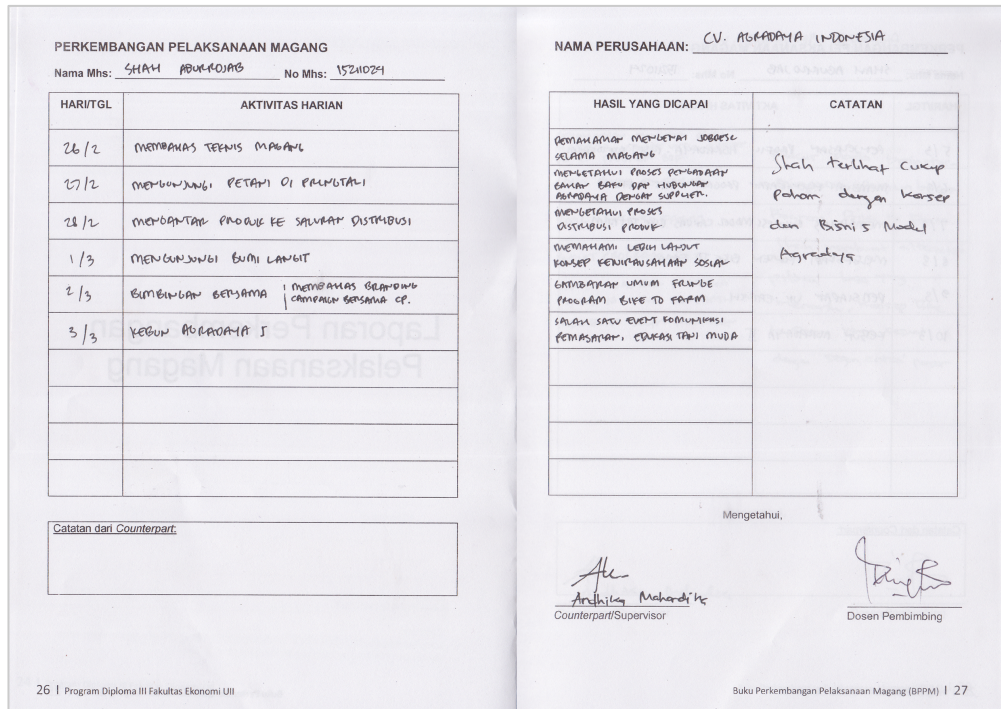 PERKEMBANGAN PELAKSANAAN MAGANG
Nama Mhs: SHAH ABURROJAB No Mhs: 15211024
HARI/TGL AKTIVITAS HARIAN
26/2 MEMBAHAS TEKNIS MAGANG
27/2 MENGUNJUNGI PETANI DI PRINGTALI
28/2 MENGANTAR PRODUK KE SALURAN DISTRIBUSI
1/3 MENGUNJUNGI BUMI LANGIT
2/3 BIMBINGAN BERSAMA | MEMBAHAS BRANDING
CAMPAIGN BERSAMA CP.
3/3 KEBUN AGRADAYA 5
Catatan dari Counterpart:
26 | Program Diploma III Fakultas Ekonomi UII
NAMA PERUSAHAAN: CV. AGRADAYA INDONESIA
HASIL YANG DICAPAI CATATAN
PEMAHAMAN MENGENAI JOBDESC
SELAMA MAGANG
MENGETAHUI PROSES PENGADAAN
BAHAN BAKU DAN HUBUNGAN
AGRADAYA DENGAN SUPPLIER.
MENGETAHUI PROSES
DISTRIBUSI PRODUK
MEMAHAMI LEBIH LANJUT
KONSEP KEWIRAUSAHAAN SOSIAL
GAMBARAN UMUM
PROGRAM BIKE TO FARM
SALAH SATU EVENT KOMUNIKASI
PEMASARAN, EDUKASI TANI MUDA
Shah terlihat cukup
paham dengan konsep
dan Bisnis Model
Agradaya
Mengetahui,
Andhika Mahardika
Counterpart/Supervisor
Dosen Pembimbing
Buku Perkembangan Pelaksanaan Magang (BPPM) | 27